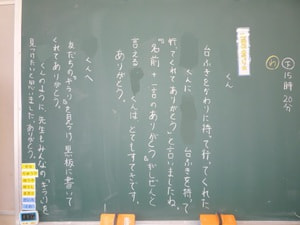 下 15時20分
台ふきをかわりに持って行ってくれた
くん
くんに 台ふきを持って
やってくれてありがとう」と言いましたね。
"名前+一言のありがとう"がしぜんと
言える くんはとてもすてきです。
ありがとう。
くんへ
友だちの"キラリ"を見つけ黒板に書いて
くれてありがとう。
くんのように、先生もみんなのキラリを
見つけたいと思いました。ありがとう。